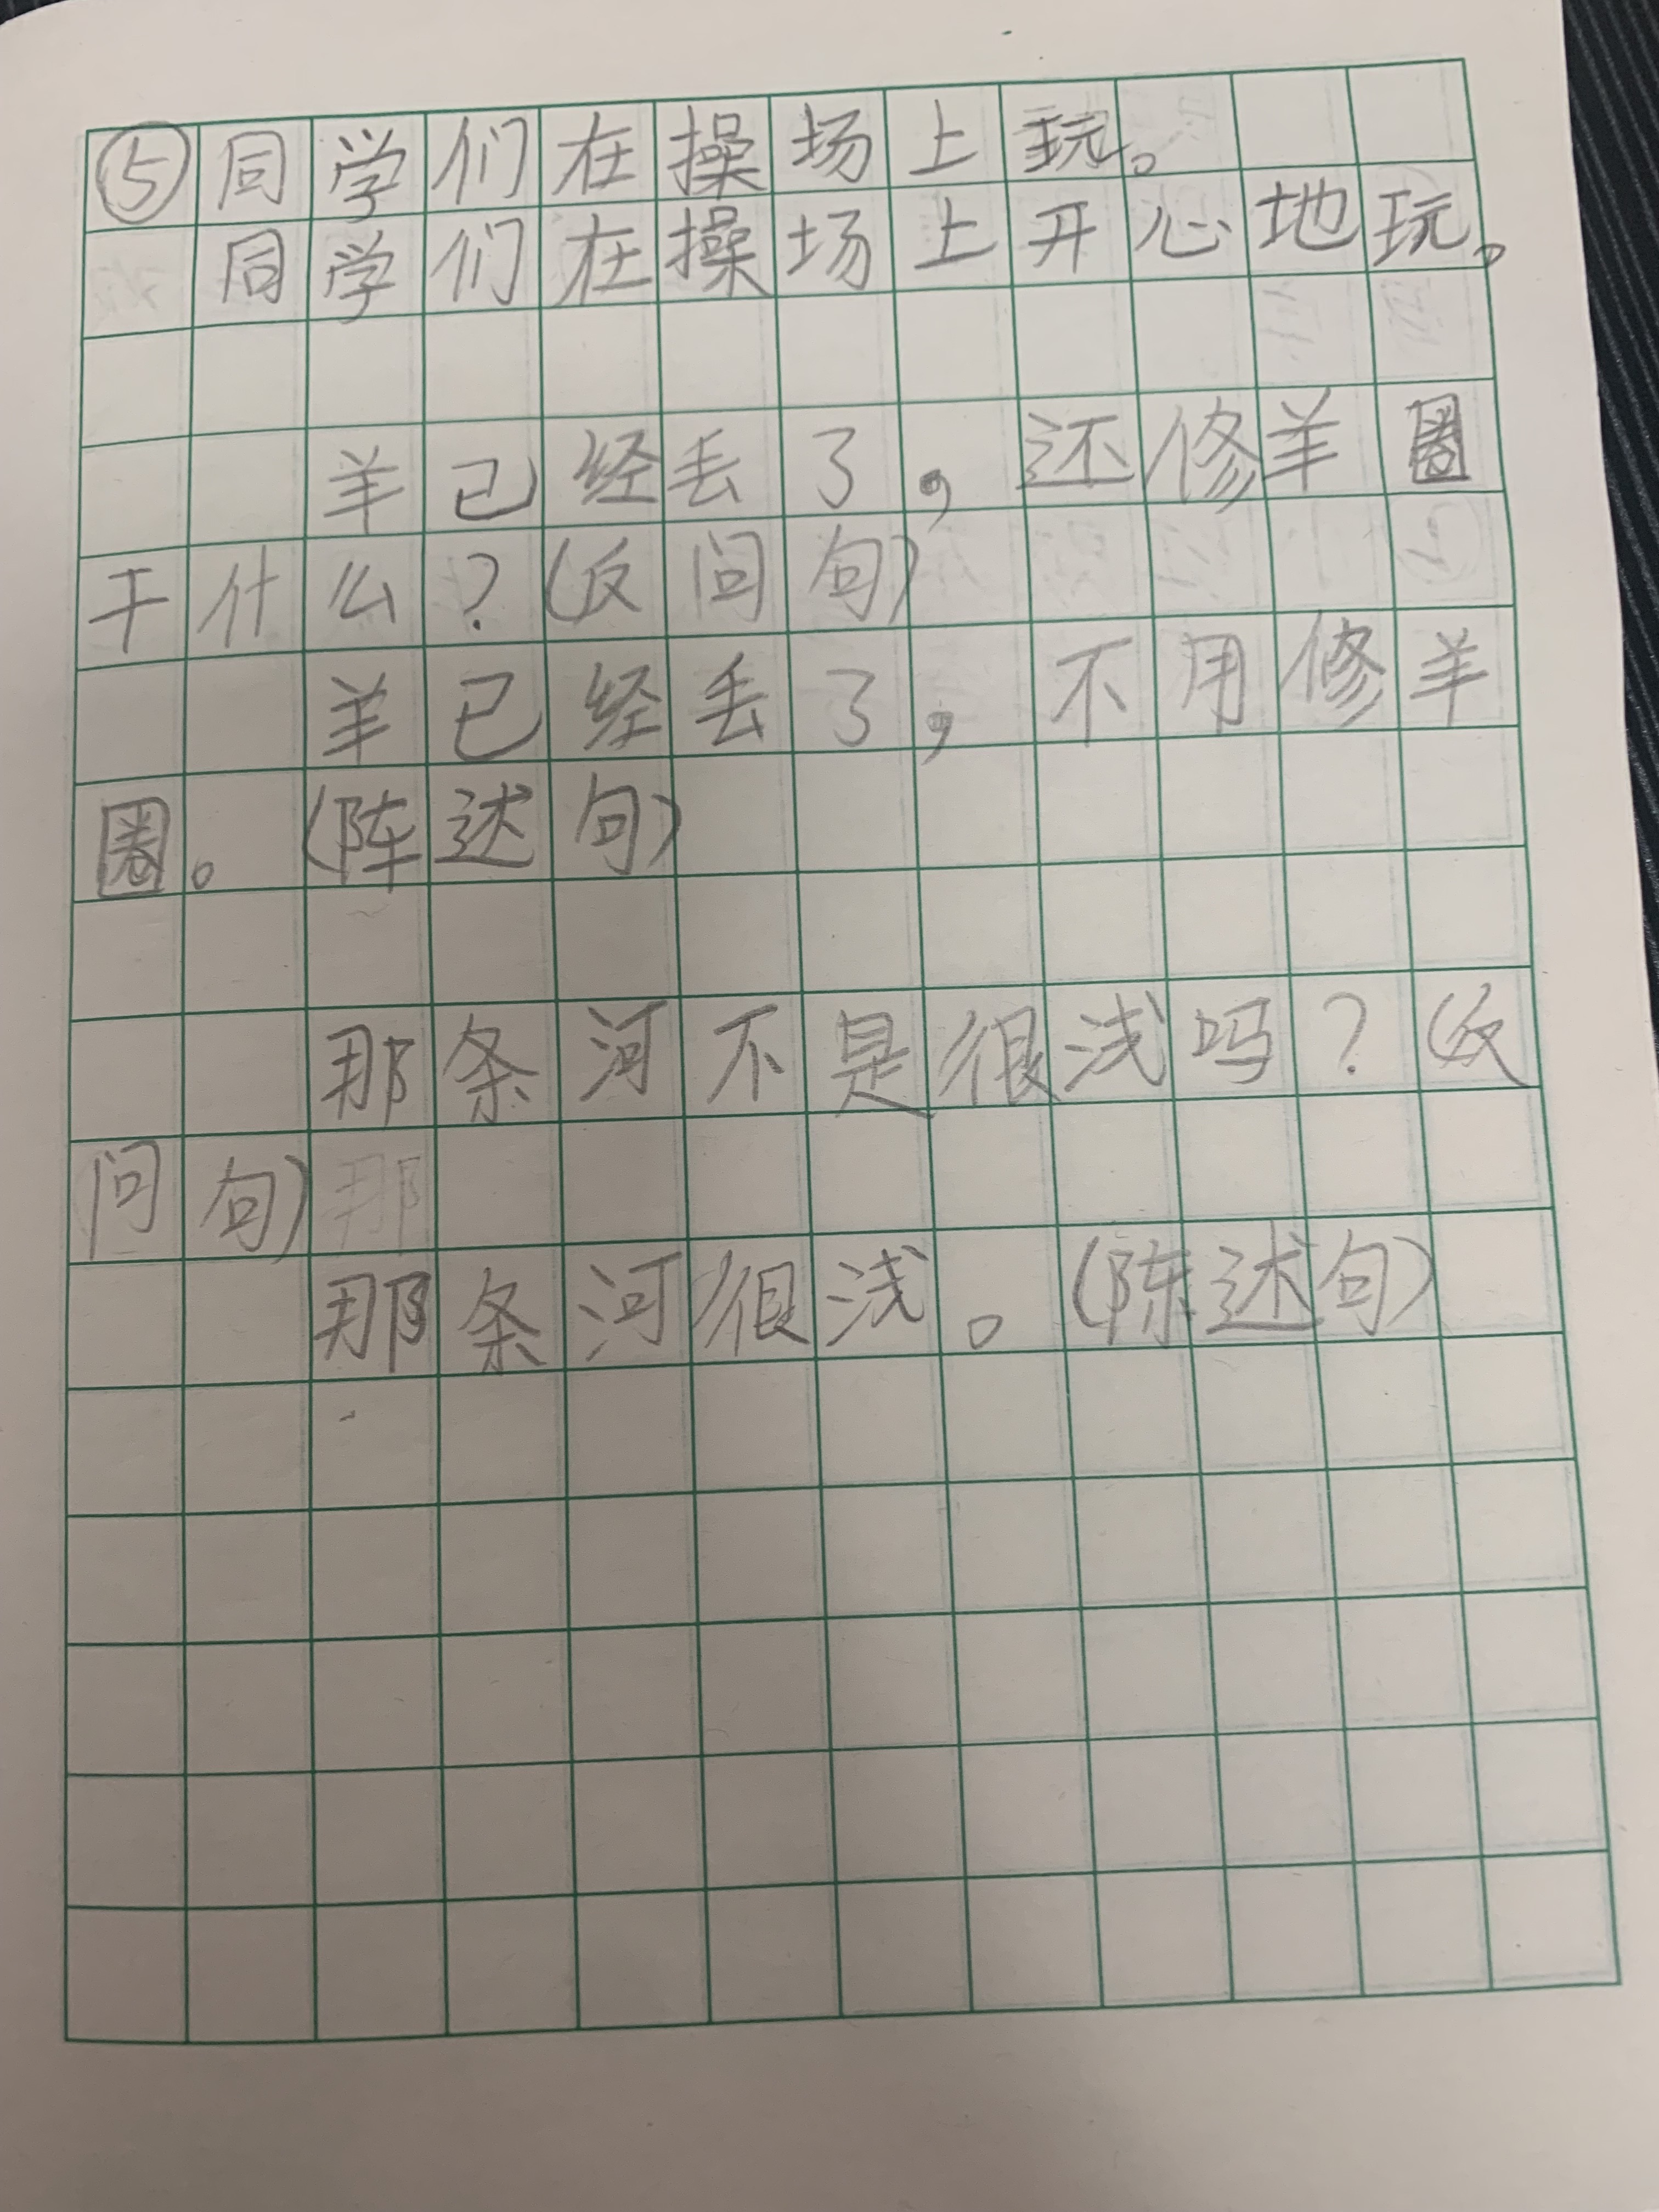 ⑤同学们在操场上玩。
同学们在操场上开心地玩。
羊已经丢了，还修羊圈
干什么？(反问句)
羊已经丢了，不用修羊
圈。(陈述句)
那条河不是很浅吗？(反
问句)那
那条河很浅。(陈述句)